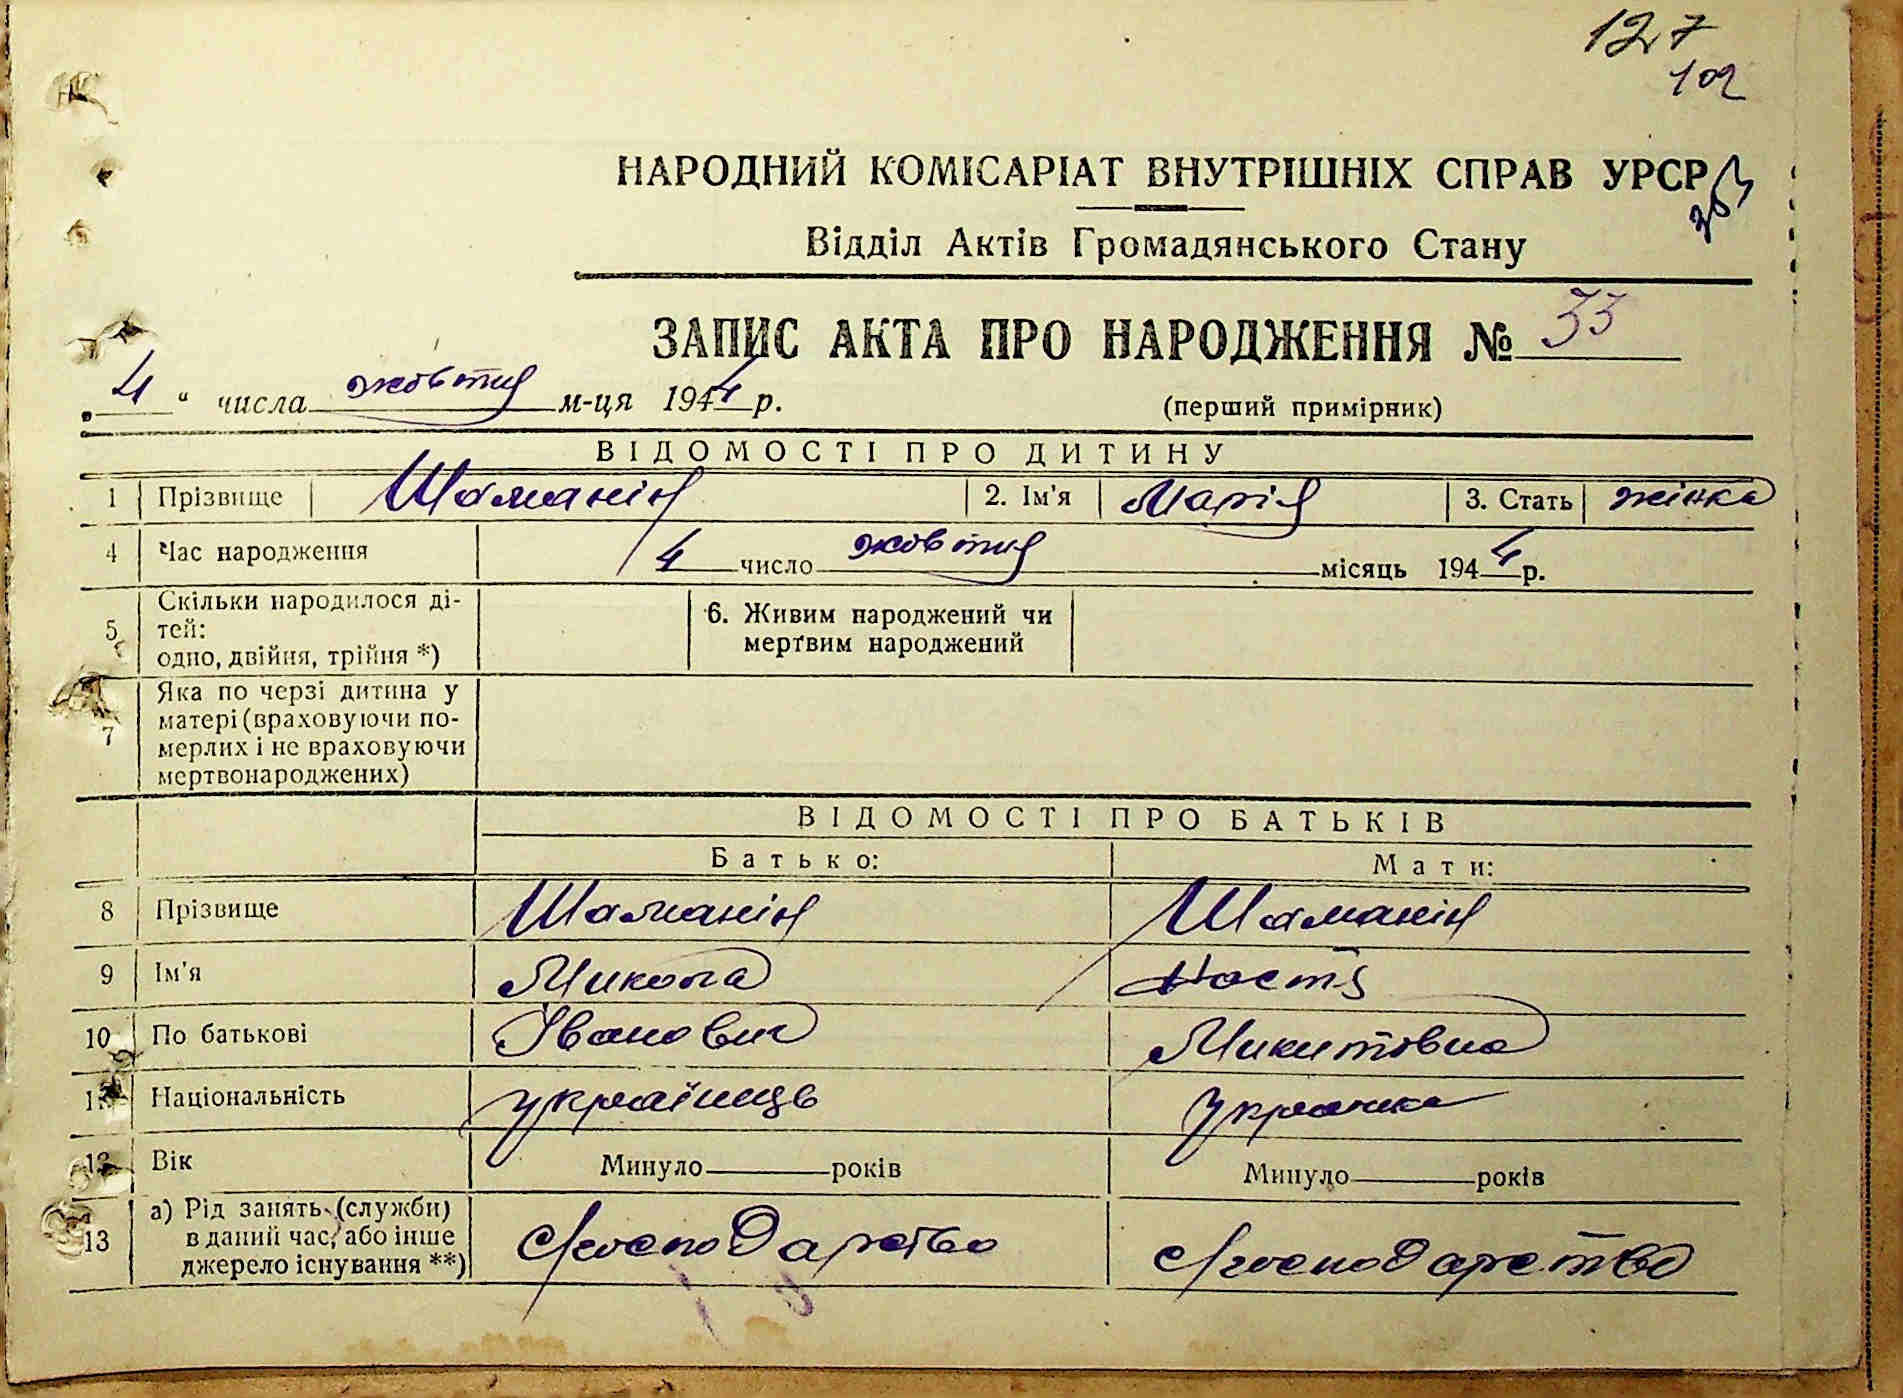 127
102
НАРОДНИЙ КОМІСАРІАТ ВНУТРІШНІХ СПРАВ УРСР
Відділ Актів Громадянського Стану
ЗАПИС АКТА ПРО НАРОДЖЕННЯ № 33
„ 4 “ числа жовтня м-ця 1944 р.
(перший примірник)
ВІДОМОСТІ ПРО ДИТИНУ
1 Прізвище Шаманія 2. Ім'я Марія 3. Стать жінка
4 Час народження 4 число жовтня місяць 1944 р.
5 Скільки народилося ді-
тей:
одно, двійня, трійня *)
6. Живим народжений чи
мертвим народжений
7 Яка по черзі дитина у
матері (враховуючи по-
мерлих і не враховуючи
мертвонароджених)
ВІДОМОСТІ ПРО БАТЬКІВ
Батько: Мати:
8 Прізвище Шаманія Шаманія
9 Ім'я Микола Настя
10 По батькові Іванович Микитовна
11 Національність українець Украинка
12 Вік Минуло років Минуло років
13 а) Рід занять (служби)
в даний час, або інше
джерело існування **)
Господарство Господарство